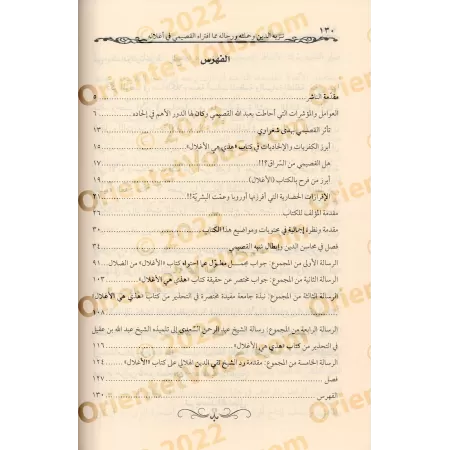 ١٣٠ تنزيه الدين وحملته ورجاله مما افتراه القصيمي في أغلاله
الفهرس
مقدمة الناشر ٥
العوامل والمؤثرات التي أحاطت بعبد الله القصيمي وكان لها الدور الأهم في إلحاده ٦
تأثر القصيمي بهدى شعراوي ١٣
أبرز الكفريات والإلحاديات في كتاب «هذي هي الأغلال» ١٥
هل القصيمي من السراق؟!! ١٧
أبرز من فرح بالكتاب (الأغلال) ١٩
الإفرازات الحضارية التي أفرزتها أوروبا وعمّت البشريّة!! ٢١
مقدمة المؤلف للكتاب ٢٦
مقدمة ونظرة إجمالية في محتويات ومواضيع هذا الكتاب ٣٠
فصل في محاسن الدين وإبطال شبه القصيمي ٣٤
الرسالة الأولى من المجموع: جواب مجمل مطوّل عما احتواه كتاب «الأغلال» من الضلال ٩١
الرسالة الثانية من المجموع: جواب مختصر عن حقيقة كتاب «هذي هي الأغلال» ١٠٣
الرسالة الثالثة من المجموع: نبذة جامعة مفيدة مختصرة في التحذير من كتاب «هذي هي الأغلال»
١٠٨
الرسالة الرابعة من المجموع: رسالة الشيخ عبد الرحمن السعدي إلى تلميذه الشيخ عبد الله بن عقيل
في التحذير من كتاب «هذي هي الأغلال» ١١٦
الرسالة الخامسة من المجموع: مقدمة رد الشيخ تقي الدين الهلالي على كتاب «الأغلال» ١٢٤
فصل ١٢٧
الفهرس ١٣٠
© 2022
OrientetVous.com